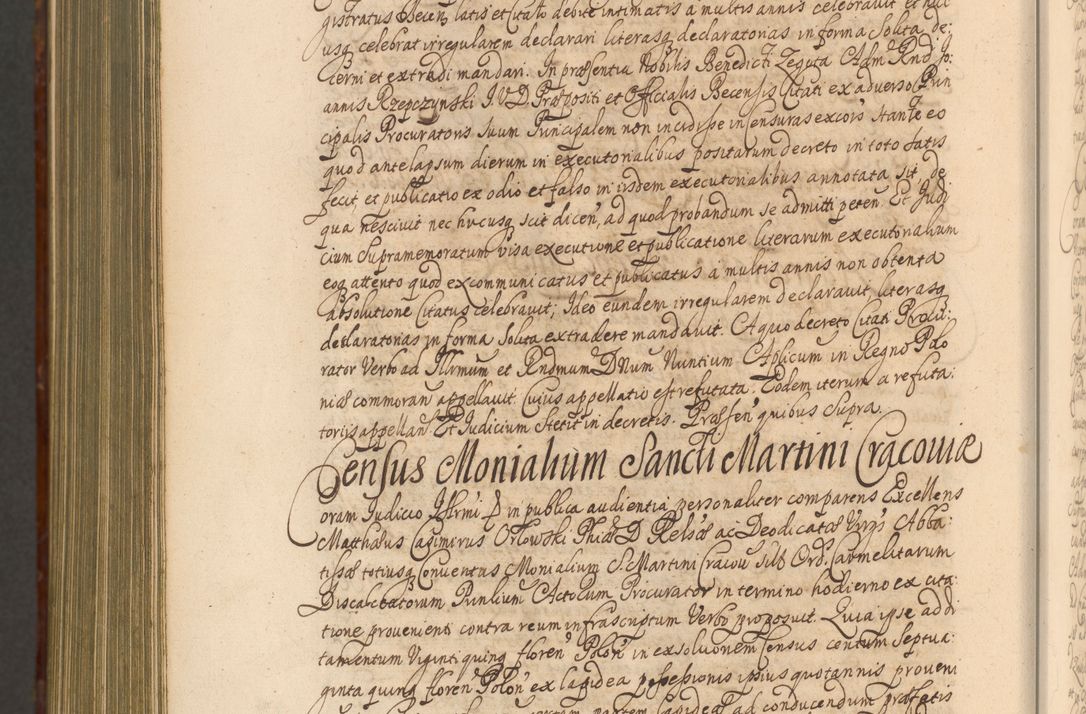 gistratus Becen: latis et citato debite intimatis a multis annis celebravit et huc
usq celebrat irregularem declarari literasq declaratorias in forma Solita de:
cerni et extradi mandari. In præsentia Nobilis Benedicti Zeguta Adm Rnd Jo:
annis Rzepczynski I.V.D. Præpositi et Officialis Becensis Citati ex adverso Prin
cipalis Procuratoris suum Principalem non incidisse in censuras excois stante eo
quod antelapsum dierum in executorialibus positarum decreto in toto satis
fecit et publicatio ex odio et falso in iisdem executorialibus annotata sit, de
qua nescivit nec hucusq scit dicen, ad quod probandum se admitti peten. Et Judi
cium Supramemoratum visa executione et publicatione literarum executorialium
eoq attento quod excommunicatus et publicatus a multis annis non obtenta
absolutione Citatus celebravit; Ideo eundem irregularem declaravit, literasq
declaratorias in forma Solita extradere mandavit. A quo decreto Citati Procu:
rator Verbo ad Illrmum et Rndmum DNum Nuntium Aplicum in Regno Polo
niæ commoran appellavit. Cuius appellatio est refutata. Eodem iterum a refuta:
torijs appellan. Et Judicium stetit in decretis. Præsen quibus supra.
Census Monialium Sancti Martini Cracoviæ
Coram Judicio Illrmi D in publica audientia personaliter comparens Excellens
Matthæus Casimirus Orłowski Phiæ D Relsæ ac Deodicatæ Virgs Abba:
tissæ totiusq Conventus Monialium S. Martini Cracov sub Ord. Carmelitarum
Discalceatorum Punlium Actolum Procurator in termino hodierno ex cita:
tione provenienti contra reum infrascriptum Verbo proposuit. Quia ipse addi
tamentum Viginti quinq floren Polon in exsolvonem Census centum Septua:
ginta quinq floren Polon ex lapidea possessionis ipsius quotannis proveni
partem lapideæ ad conducendum præfatis